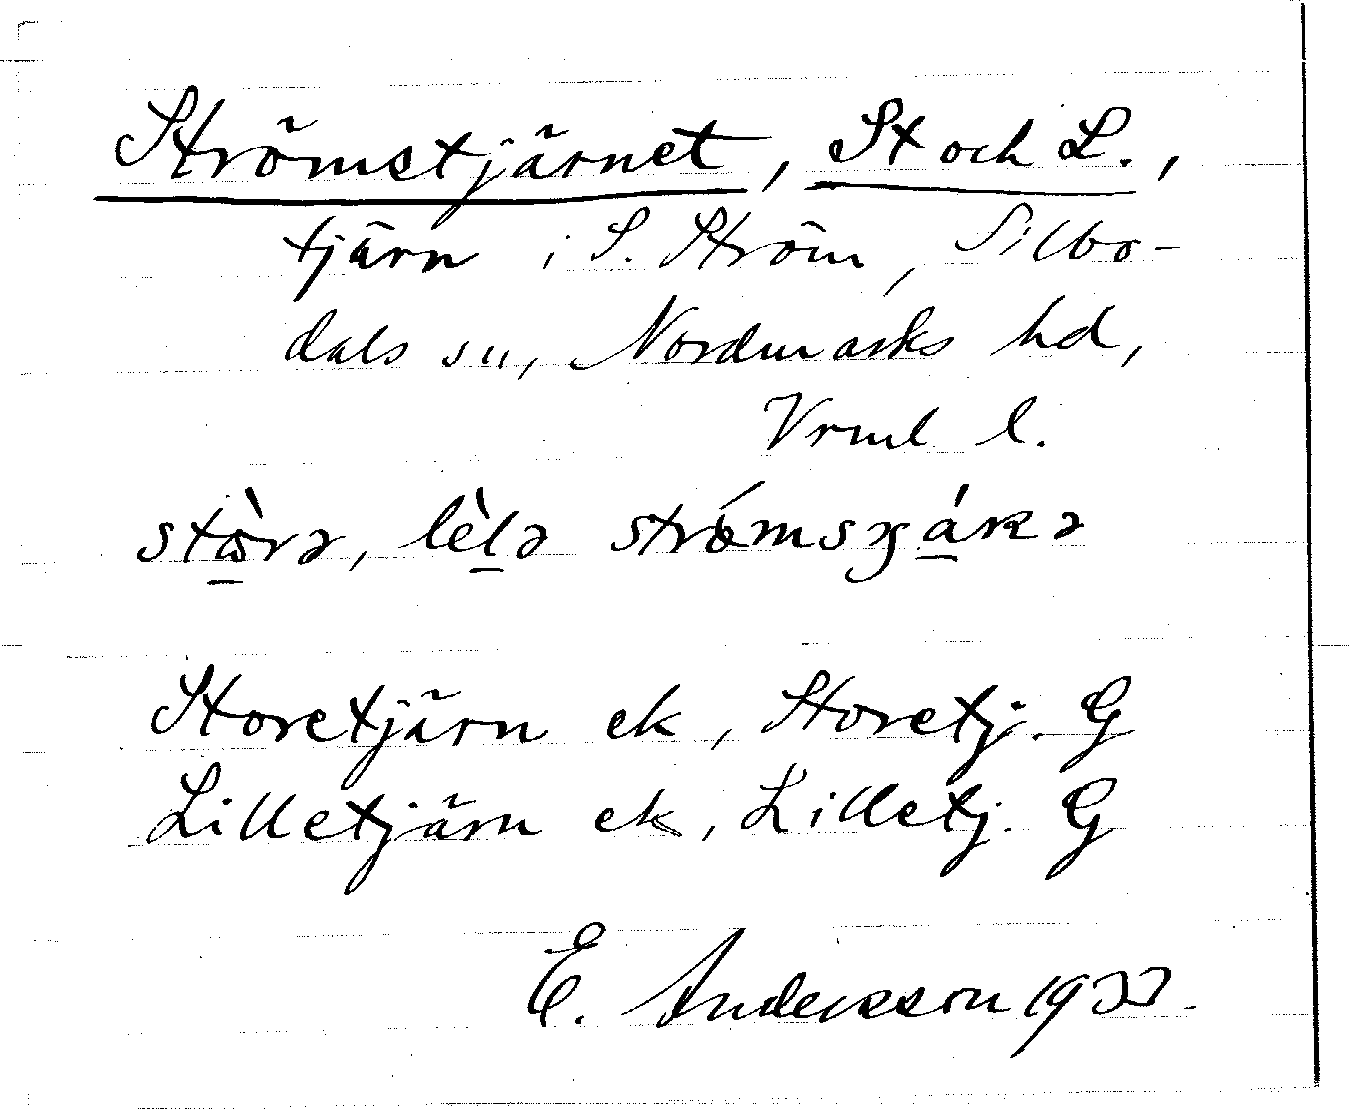 Strömstjärnet, St och L.,
tjärn i S. Ström, Silbo-
dals sn, Nordmarks hd,
Vrml l.
Storetjärn ek, Storetj. G
Lilletjärn ek, Lilletj. G
E. Andersson 1933.